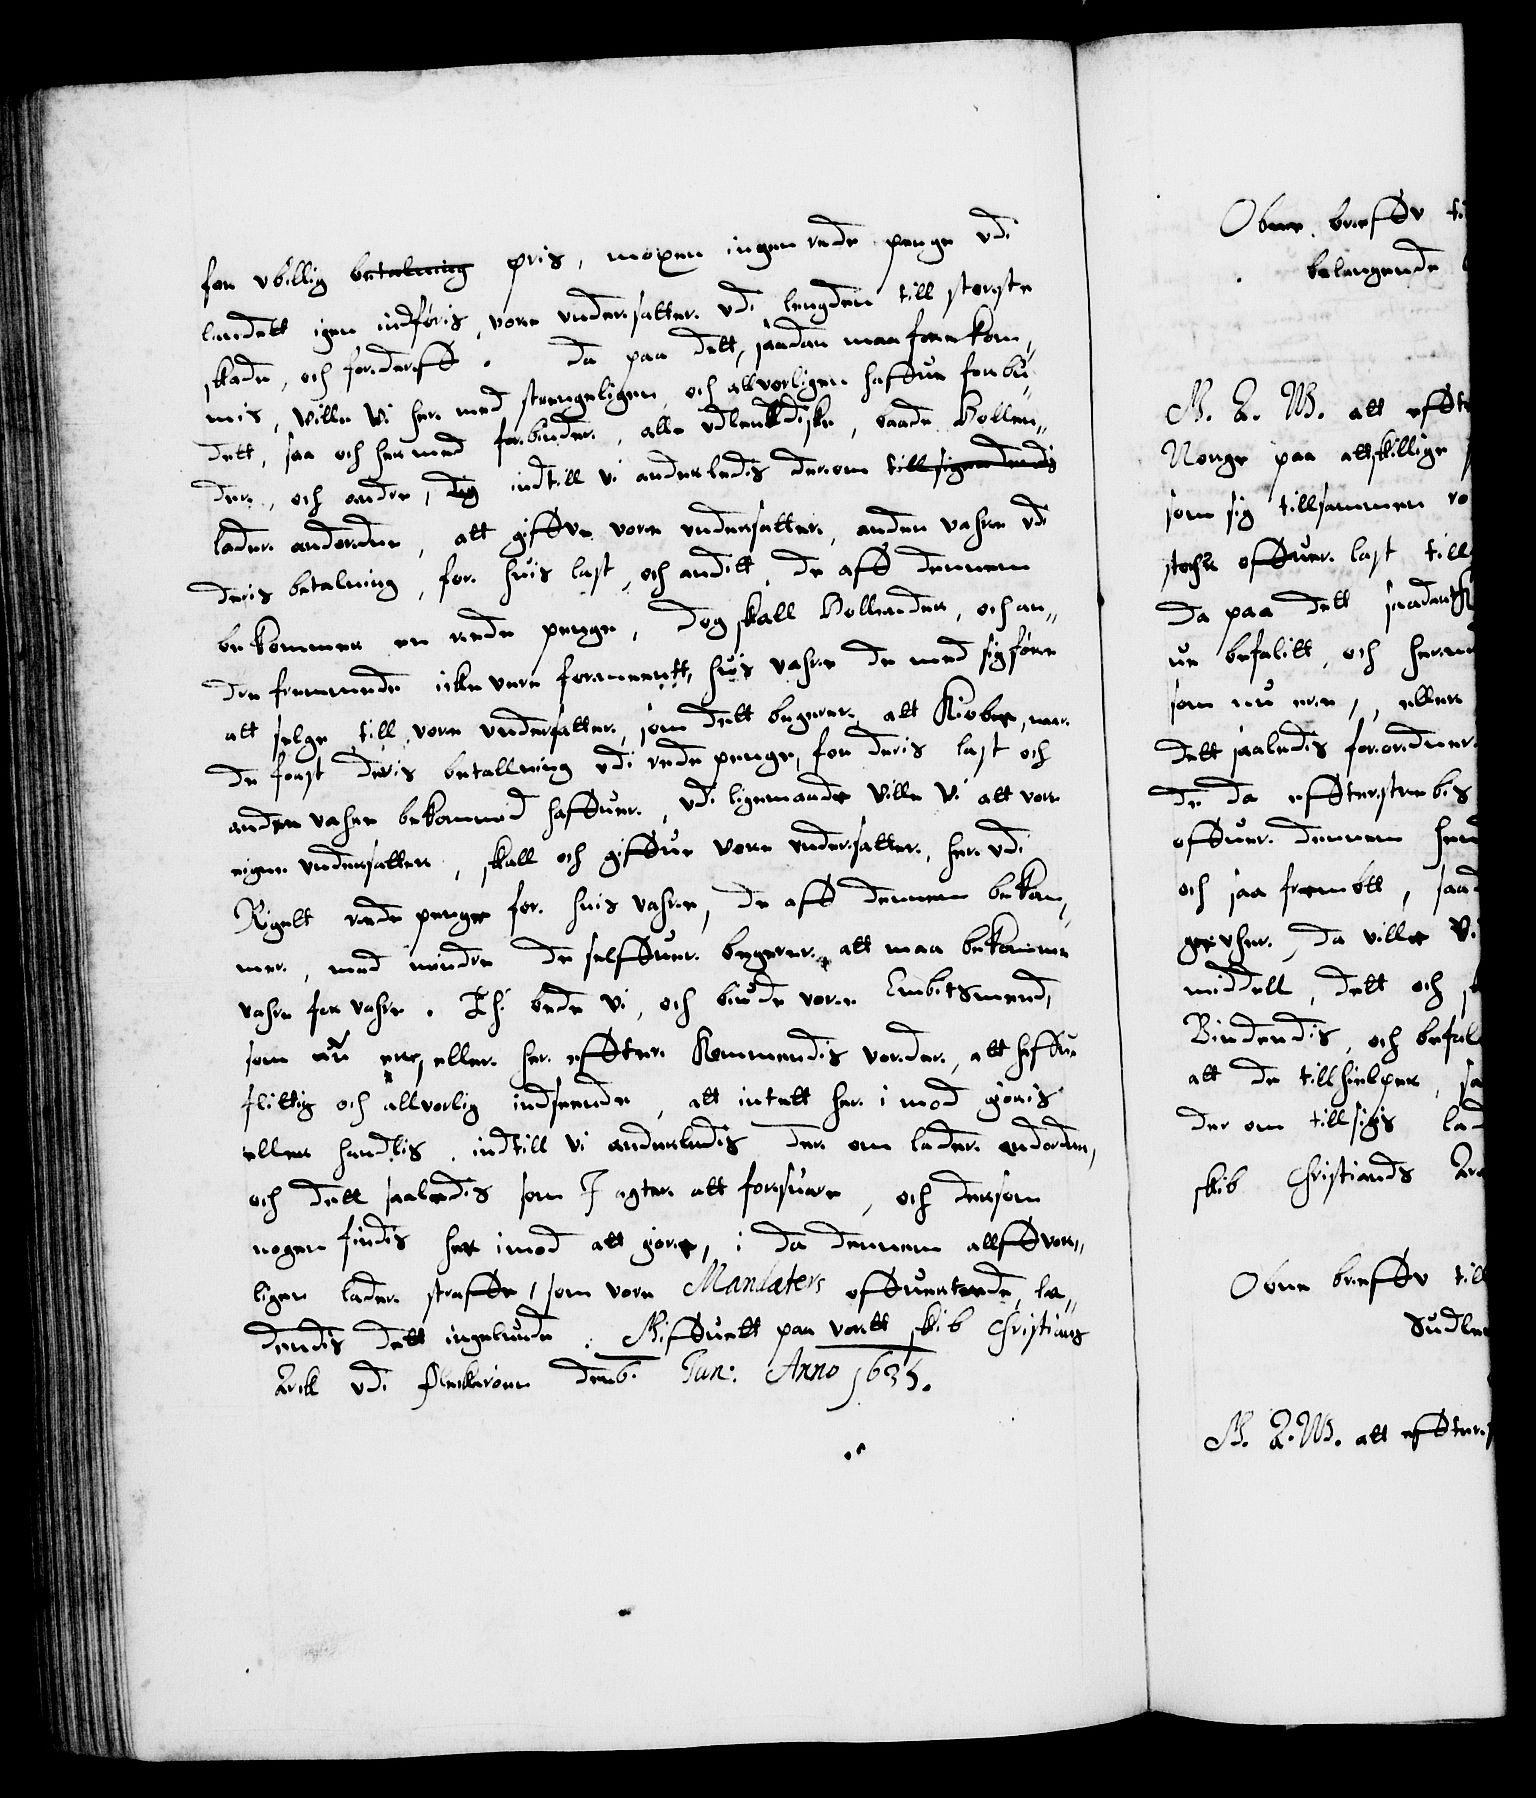 for vbillig betalning pris, moxen ingen rede penge vdi
landett igen indføris, vore vndersatter vdi lengden till største
skade, och forderff. Da paa dett, saadan maa forrekom,
mis, Ville Vi her med strengeligen, och allvorligen haffue forbu,
dett, saa och hermed forbinder, alle vdlendiske, baade Hollen,,
der, och andre, indtill Vi anderledis derom tillsigendendis
lader andordne, att giffve vore vndersatter, anden vahre vdi
deris betalning, for huis last, och anditt, de aff dennem
bekommer en rede penge, dog skall Hollender, och an,,
dre fremmede icke vere formeentt, huis vahre de med sig føre
att selge till vore vndersatter, som dett begerer, att Kiobe, naar
de forst deris betallning vdi rede penge, for deris last och
anden vahre bekommed haffuer, vdi ligemaade Ville Vi att vore
eigne vndersatter, skall och giffue Vore vndersatter, her vdi
Rigett rede penge for huis vahre, de aff dennem bekom,
mer, med mindre de selffuer begerer att maa bekomme
vahre for vahre. Thi bede Vi, och biude vore Embitsmend,
som nu ere, eller her effter Kommendis vorder, att haffue
flittig och allvorlig indseende, att intett her i mod gøris
eller handlis, indtill Vi anderledis der om lader andorden,
och dett saaledis som I agter att forsuare, och dersom
nogen findis her imod att gøre, i da dennem allffvor,,
ligen lader straffe, som vore Mandaters offuertrede, la,,
dendis dett ingelunde. Giffuett paa vortt skib Christians
Arck vdi Fleckerøen den 6. Jun: Anno 1635.

Obne breffv
belangende

G. A. W. att effte
Norge paa attskillige
som sig tillsammen ro
stocke offuer last till
Da paa dett saadant
ue befalitt, och herm
som nu ere, eller
dett saaledis forordner
de da effterstrebis
offuer dennem hen
och saa frembtt, saa
da ville Vi
middell, dett och
Bindendis, och befal
att de tillhielper, sa
der om tillsigis lad
skib Christiands Arc

Obne breffv till
Sudle

G. A. W. att effter